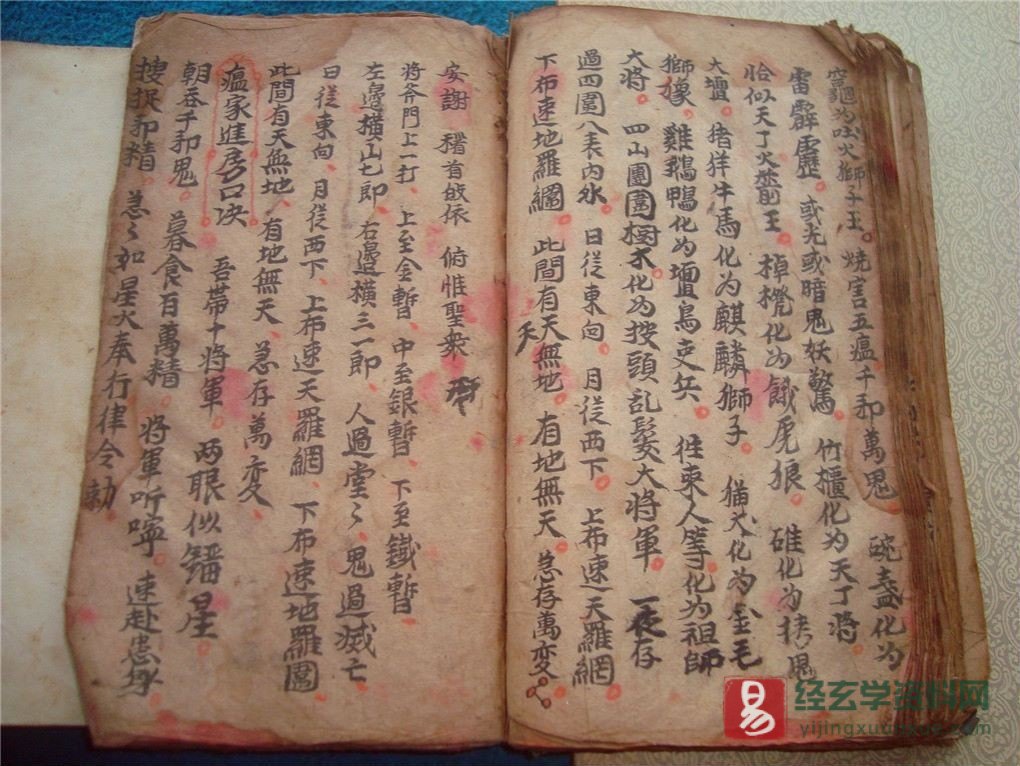 竈為吐火獅子王 燒害五瘟千邪萬鬼 碗盞化為
雷霹靂 或光或暗鬼妖驚 竹櫃化為天丁將
恰似天丁火箭王 棹櫈化為餓虎狼 碓化為
大壇 猪羊牛馬化為麒麟獅子 猫犬化為金毛
獅㺔 雞鵝鴨化為壇烏吏兵 徃來人等化為祖師
大將 四山園園樹木化為披頭乱髮大將軍 一夜存
過四園八表內外 日從東向 月從西下 上布速天羅網
下布速地羅網 此間有天無地 有地無天 急存萬变
天
安謝 稽首皈依 俯惟聖衆
將斧門上一打 上至金暫 中至銀暫 下至鐵暫
左邊橫山七郎 右邊橫三一郎 人過堂〻 鬼過滅亡
日從東向 月從西下 上布速天羅網 下布速地羅圖
此間有天無地 有地無天 急存萬变
瘟家進房口决 吾帶十將軍 两眼似鎦星
朝吞千邪鬼 暮食百萬精 將軍听嚀 速赴患身
搜捉邪精 急〻如星火奉行律令勅
易 经玄学资料网
yijingxuanxue.com